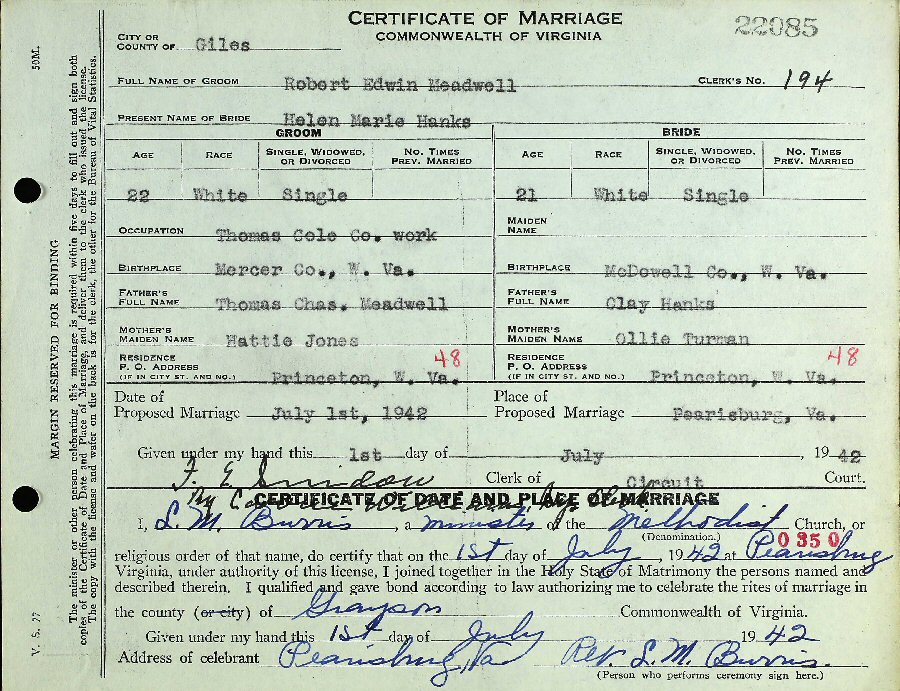 CERTIFICATE OF MARRIAGE
COMMONWEALTH OF VIRGINIA
22085
CITY OR
COUNTY OF Giles
FULL NAME OF GROOM Robert Edwin Meadwell CLERK'S NO. 194
PRESENT NAME OF BRIDE Helen Marie Hanks
GROOM BRIDE
AGE RACE SINGLE, WIDOWED, OR DIVORCED NO. TIMES PREV. MARRIED AGE RACE SINGLE, WIDOWED, OR DIVORCED NO. TIMES PREV. MARRIED
22 White Single 21 White Single
OCCUPATION Thomas Cole Co. work MAIDEN NAME
BIRTHPLACE Mercer Co., W. Va. BIRTHPLACE McDowell Co., W. Va.
FATHER'S FULL NAME Thomas Chas. Meadwell FATHER'S FULL NAME Clay Hanks
MOTHER'S MAIDEN NAME Hattie Jones MOTHER'S MAIDEN NAME Ollie Turman
48 48
RESIDENCE P. O. ADDRESS (IF IN CITY ST. AND NO.) Princeton, W. Va. RESIDENCE P. O. ADDRESS (IF IN CITY ST. AND NO.) Princeton, W. Va.
Date of Proposed Marriage July 1st, 1942 Place of Proposed Marriage Pearisburg, Va.
Given under my hand this 1st day of July, 1942
F. E. Snidow Clerk of Circuit Court.
By
CERTIFICATE OF DATE AND PLACE OF MARRIAGE
I, L. M. Burris, a minister of the Methodist Church, or
(Denomination.)
0350
religious order of that name, do certify that on the 1st day of July, 1942 at Pearisburg
Virginia, under authority of this license, I joined together in the Holy State of Matrimony the persons named and
described therein. I qualified and gave bond according to law authorizing me to celebrate the rites of marriage in
the county (or city) of Grayson Commonwealth of Virginia.
Given under my hand this 1st day of July 1942
Address of celebrant Pearisburg, Va Rev. L. M. Burris.
(Person who performs ceremony sign here.)
V. S. 77 MARGIN RESERVED FOR BINDING 50M.
The minister or other person celebrating this marriage is required within five days to fill out and sign both
copies of the Certificate of Date and Place of Marriage, and deliver them to the clerk who issued the license.
The copy with the license and wafer on the back is for the clerk, the other for the Bureau of Vital Statistics.